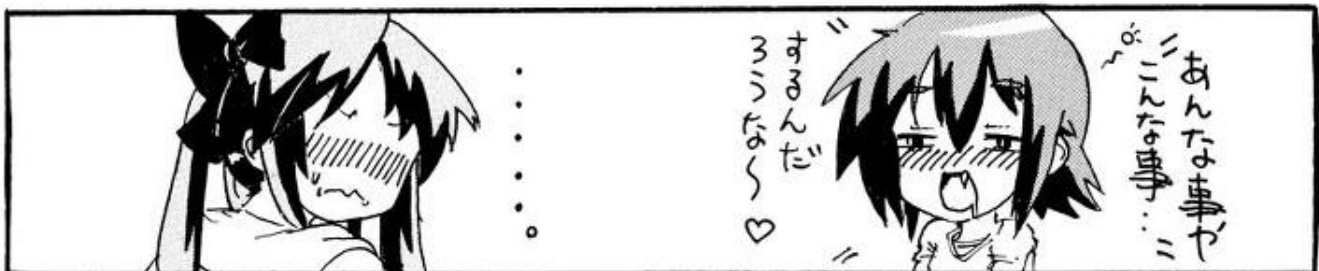 あんな事や
こんな事‥
するんだ
ろうな～♡
・・・・・・。